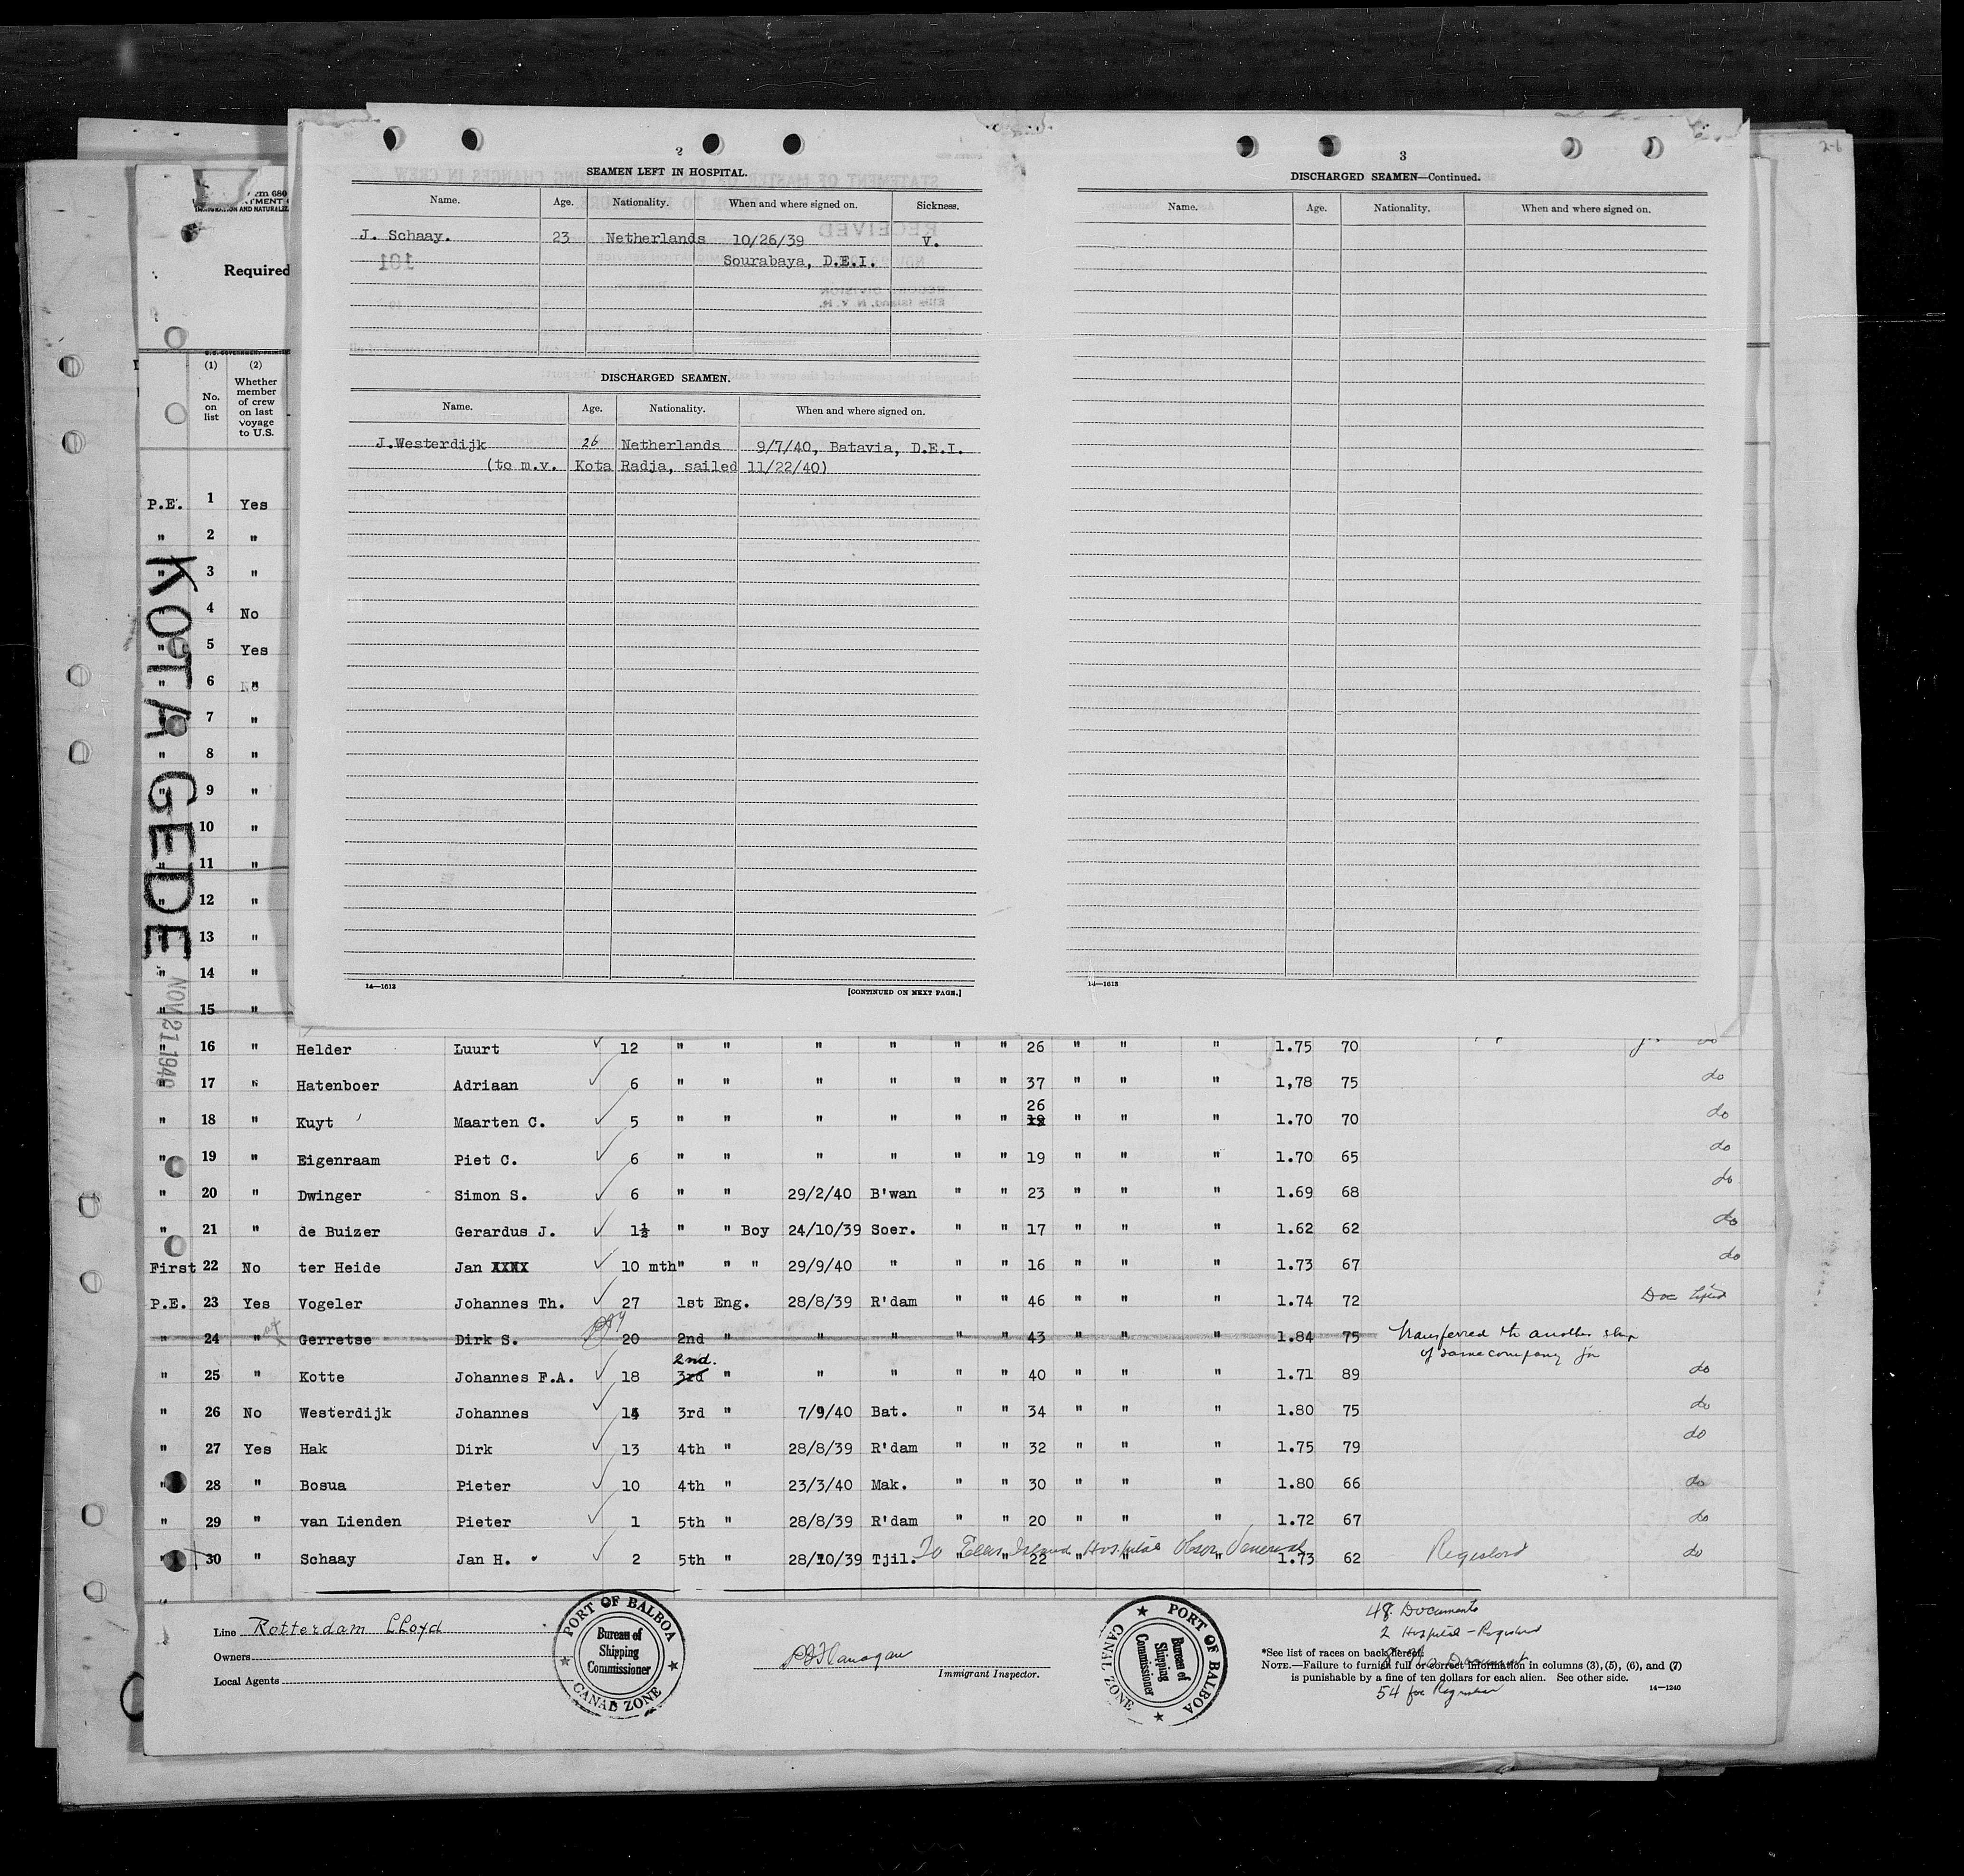 2
SEAMEN LEFT IN HOSPITAL.
Name. Age. Nationality. When and where signed on. Sickness.
J. Schaay. 23 Netherlands 10/26/39 V.
Sourabaya, D.E.I.
DISCHARGED SEAMEN.
Name. Age. Nationality. When and where signed on.
J.Westerdijk 26 Netherlands 9/7/40, Batavia, D.E.I.
(to m.v. Kota Radja, sailed 11/22/40)
14—1613
[CONTINUED ON NEXT PAGE.]
3
DISCHARGED SEAMEN—Continued.
Name. Age. Nationality. When and where signed on.
14—1613
2-6
rm 680
Required
(1) (2)
No. on list
Whether member of crew on last voyage to U.S.
KOTA GEDE
NOV 21 1940
P.E. 1 Yes
" 2 "
" 3 "
" 4 No
" 5 Yes
" 6 "
" 7 "
" 8 "
" 9 "
" 10 "
" 11 "
" 12 "
" 13 "
" 14 "
" 15 "
" 16 " Helder Luurt 12 " " " " " " 26 " " " 1.75 70 do
" 17 " Hatenboer Adriaan 6 " " " " " " 37 " " " 1,78 75 do
" 18 " Kuyt Maarten C. 5 " " " " " " 26 19 " " " 1.70 70 do
" 19 " Eigenraam Piet C. 6 " " " " " " 19 " " " 1.70 65 do
" 20 " Dwinger Simon S. 6 " " 29/2/40 B'wan " " 23 " " " 1.69 68 do
" 21 " de Buizer Gerardus J. 1½ " " Boy 24/10/39 Soer. " " 17 " " " 1.62 62 do
First 22 No ter Heide Jan XXXX 10 mth " " " 29/9/40 " " " 16 " " " 1.73 67 do
P.E. 23 Yes Vogeler Johannes Th. 27 1st Eng. 28/8/39 R'dam " " 46 " " " 1.74 72 Doc
" 24 " Gerretse Dirk S. 20 2nd " " " " " 43 " " " 1.84 75 Transferred to another ship
of same company
" 25 " Kotte Johannes F.A. 18 2nd. 3rd " " " " " 40 " " " 1.71 89 do
" 26 No Westerdijk Johannes 14 3rd " 7/9/40 Bat. " " 34 " " " 1.80 75 do
" 27 Yes Hak Dirk 13 4th " 28/8/39 R'dam " " 32 " " " 1.75 79 do
" 28 " Bosua Pieter 10 4th " 23/3/40 Mak. " " 30 " " " 1.80 66 do
" 29 " van Lienden Pieter 1 5th " 28/8/39 R'dam " " 20 " " " 1.72 67 do
" 30 " Schaay Jan H. 2 5th " 28/10/39 Tjil. " " 22 " " " 1.73 62 do
To Ellis Island Hospital
Line Rotterdam Lloyd
Owners
Local Agents
PORT OF BALBOA
Bureau of Shipping Commissioner
CANAL ZONE
Immigrant Inspector.
PORT OF BALBOA
Bureau of Shipping Commissioner
CANAL ZONE
48 Documents
2 Hospital -
*See list of races on back hereof.
NOTE.—Failure to furnish full or correct information in columns (3), (5), (6), and (7)
is punishable by a fine of ten dollars for each alien. See other side.
54 for
14—1240